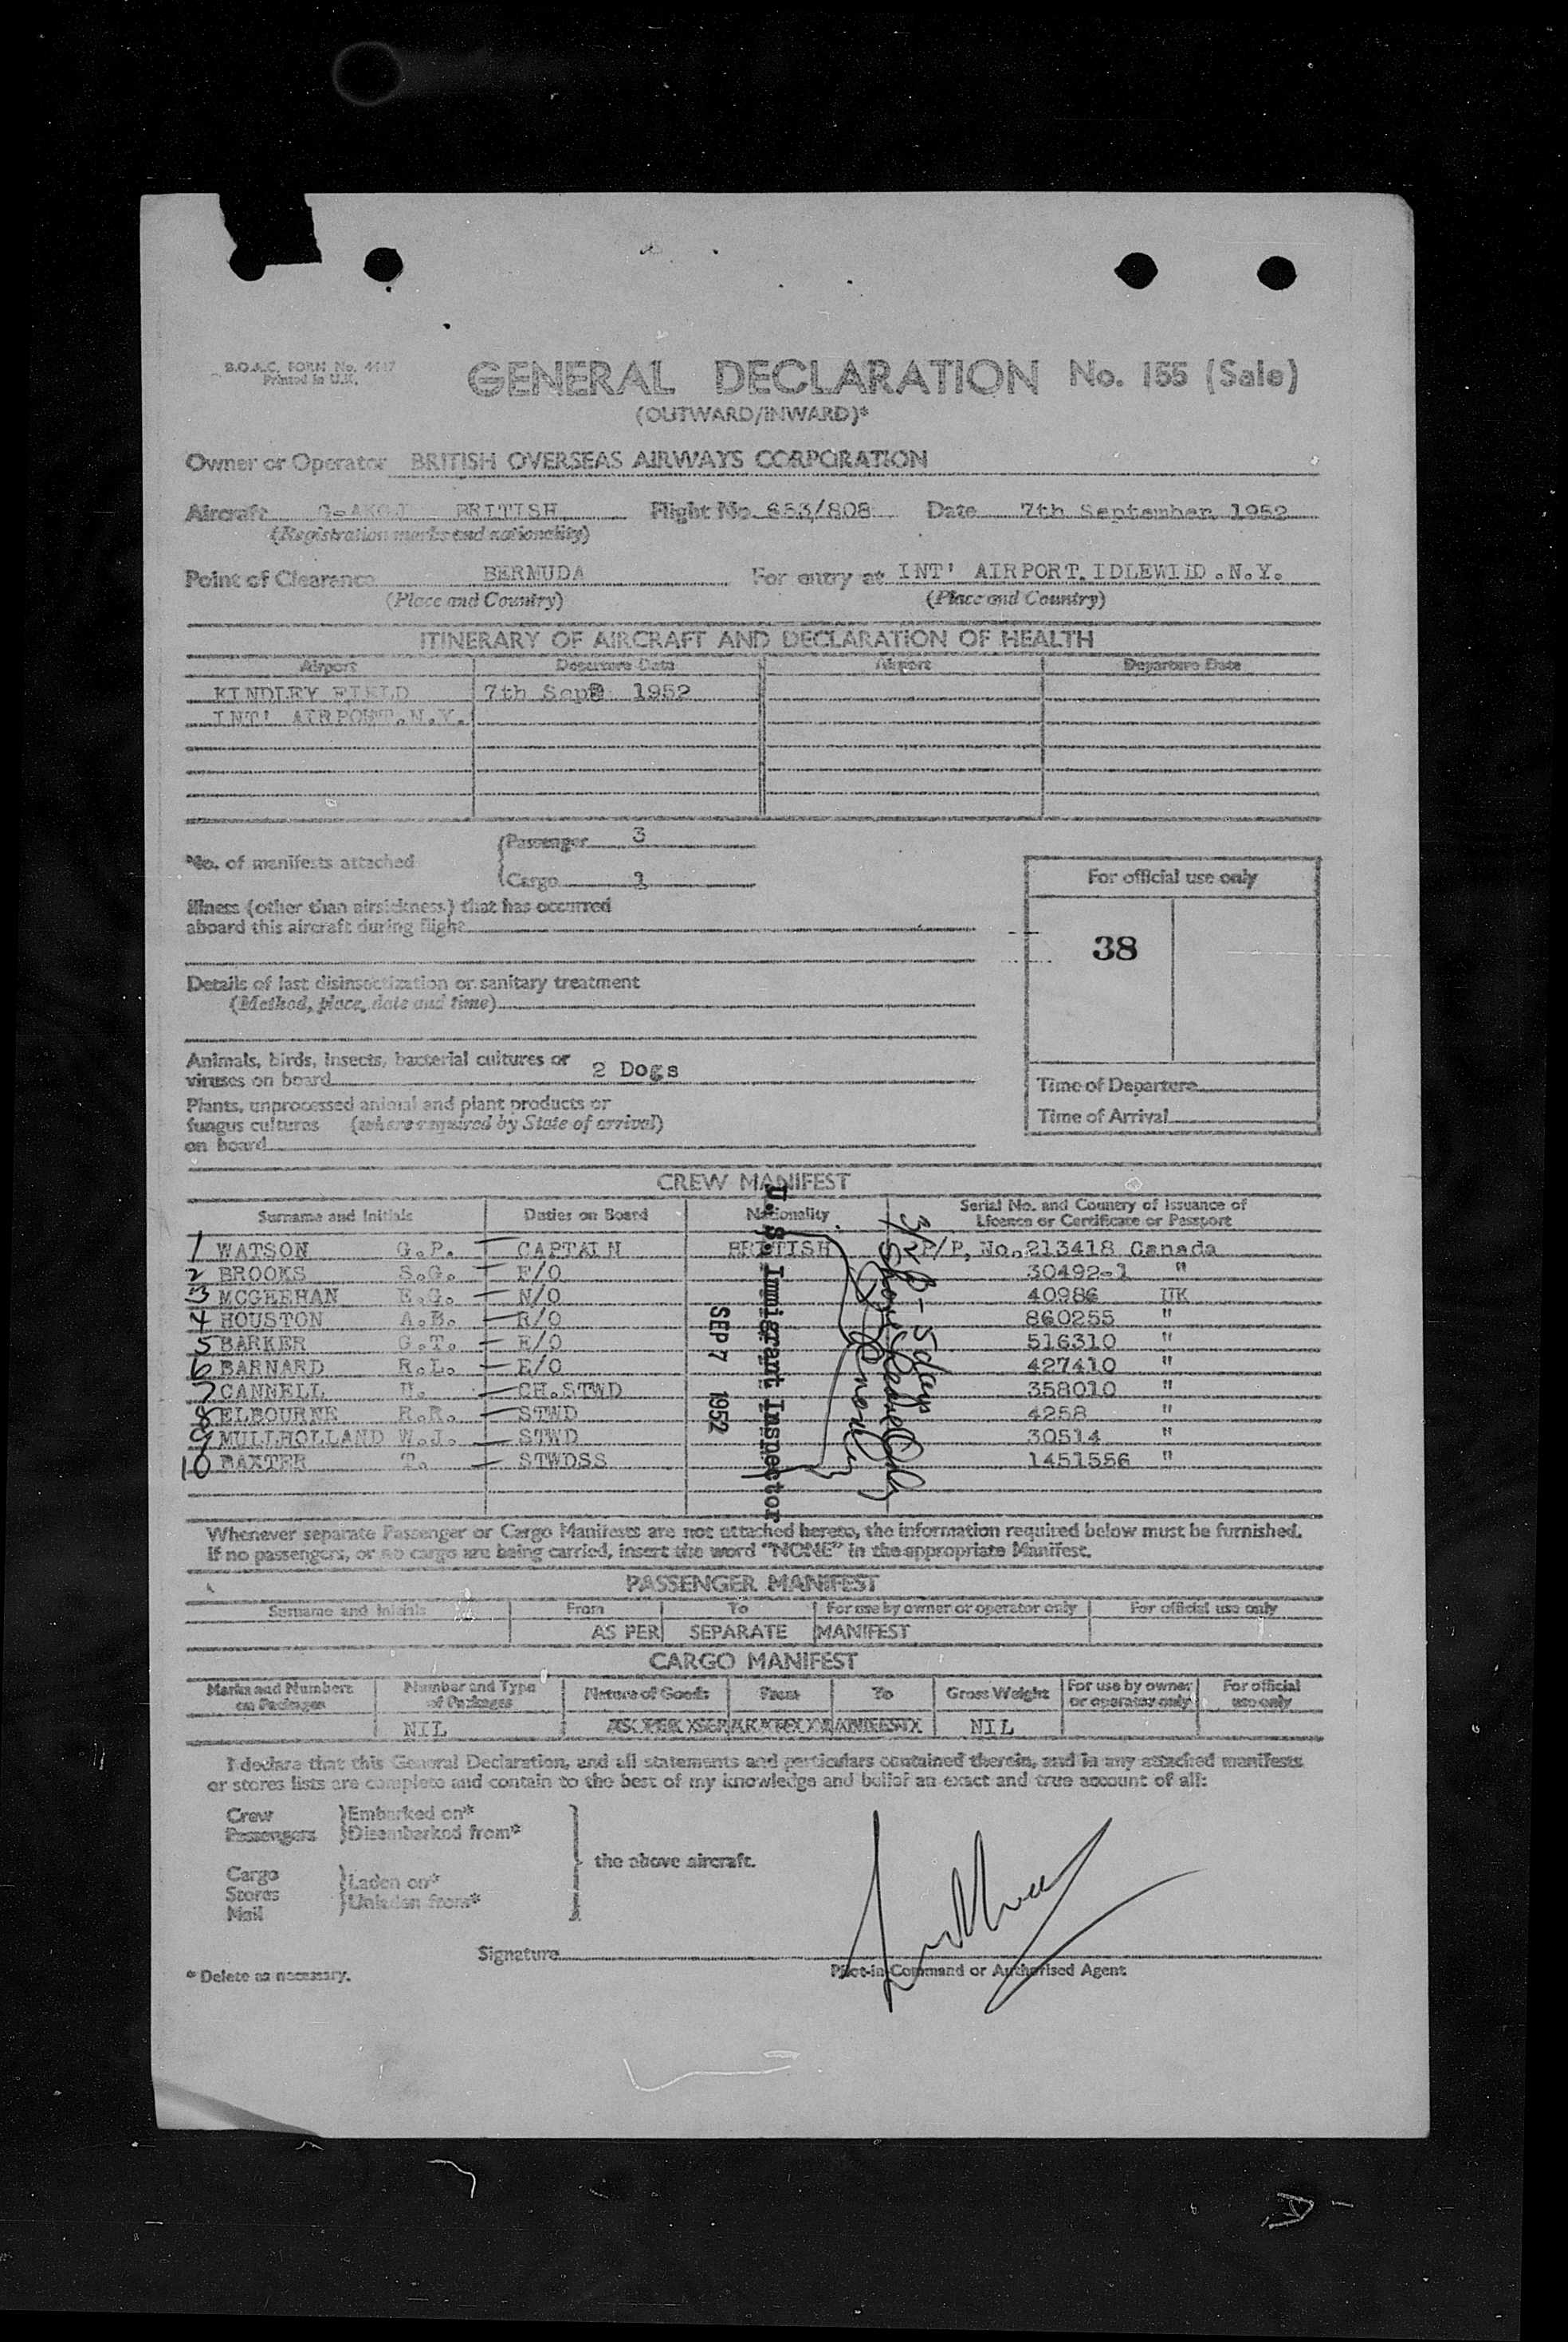 B.O.A.C. FORM No. 4417
Printed in U.K.
GENERAL DECLARATION No. 155 (Sale)
(OUTWARD/INWARD)*
Owner or Operator BRITISH OVERSEAS AIRWAYS CORPORATION
Aircraft BRITISH Flight No. 653/808 Date 7th September, 1952
(Registration marks and nationality)
Point of Clearance BERMUDA For entry at INT' AIRPORT. IDLEWILD.N.Y.
(Place and Country) (Place and Country)
ITINERARY OF AIRCRAFT AND DECLARATION OF HEALTH
Airport Departure Date Airport Departure Date
KINDLEY FIELD 7th Sep 1952
INT' AIRPORT.N.Y.
*No. of manifests attached
Passenger 3
Cargo 1
For official use only
38
Illness (other than airsickness) that has occurred
aboard this aircraft during flight
Details of last disinsectization or sanitary treatment
(Method, place, date and time)
Animals, birds, insects, bacterial cultures or
viruses on board 2 Dogs
Plants, unprocessed animal and plant products or
fungus cultures (where required by State of arrival)
on board
Time of Departure
Time of Arrival
CREW MANIFEST
Surname and Initials Duties on Board Nationality Serial No. and Country of Issuance of
Licence or Certificate or Passport
1 WATSON G.P. — CAPTAIN BRITISH P/P, No. 213418 Canada
2 BROOKS S.G. — F/O 30492-1 "
3 MCGEEHAN E.G. — N/O 40986 UK
4 HOUSTON A.B. — R/O 860255 "
5 BARKER G.T. — E/O 516310 "
6 BARNARD R.L. — E/O 427410 "
7 CANNELL — CH.STWD 358010 "
8 ELBOURNE — STWD 4258 "
9 MULLHOLLAND W.J. — STWD 30514 "
10 BAXTER T. — STWDSS 1451556 "
SEP 7 1952
U. S. Immigrant Inspector
5 days
Whenever separate Passenger or Cargo Manifests are not attached hereto, the information required below must be furnished.
If no passengers, or no cargo are being carried, insert the word "NONE" in the appropriate Manifest.
PASSENGER MANIFEST
Surname and Initials From To For use by owner or operator only For official use only
AS PER SEPARATE MANIFEST
CARGO MANIFEST
Marks and Numbers on Packages Number and Type of Packages Nature of Goods From To Gross Weight For use by owner or operator only For official use only
NIL NIL
I declare that this General Declaration, and all statements and particulars contained therein, and in any attached manifests
or stores lists are complete and contain to the best of my knowledge and belief an exact and true account of all:
Crew
Passengers
Embarked on*
Disembarked from*
Cargo
Stores
Mail
Laden on*
Unladen from*
the above aircraft.
Signature
Pilot-in-Command or Authorised Agent
* Delete as necessary.